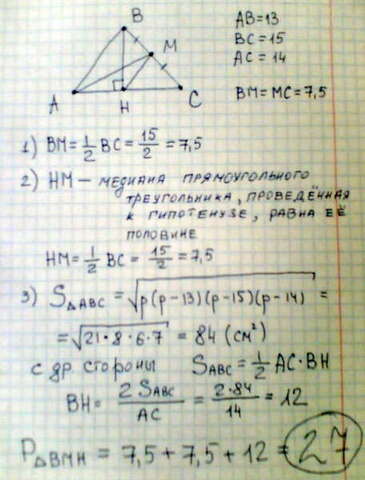 B
M
A
H
C
AB=13
BC=15
AC=14
BM=MC=7,5
1) BM=1/2 BC=15/2=7,5
2) HM – МЕДИАНА ПРЯМОУГОЛЬНОГО
ТРЕУГОЛЬНИКА, ПРОВЕДЁННАЯ
К ГИПОТЕНУЗЕ, РАВНА ЕЁ
ПОЛОВИНЕ
HM=1/2 BC=15/2=7,5
3) S△ABC=√p(p-13)(p-15)(p-14)=
=√21·8·6·7=84 (см²)
с др. стороны S△ABC=1/2 AC·BH
BH=2S△ABC/AC=2·84/14=12
P△BMH=7,5+7,5+12=27